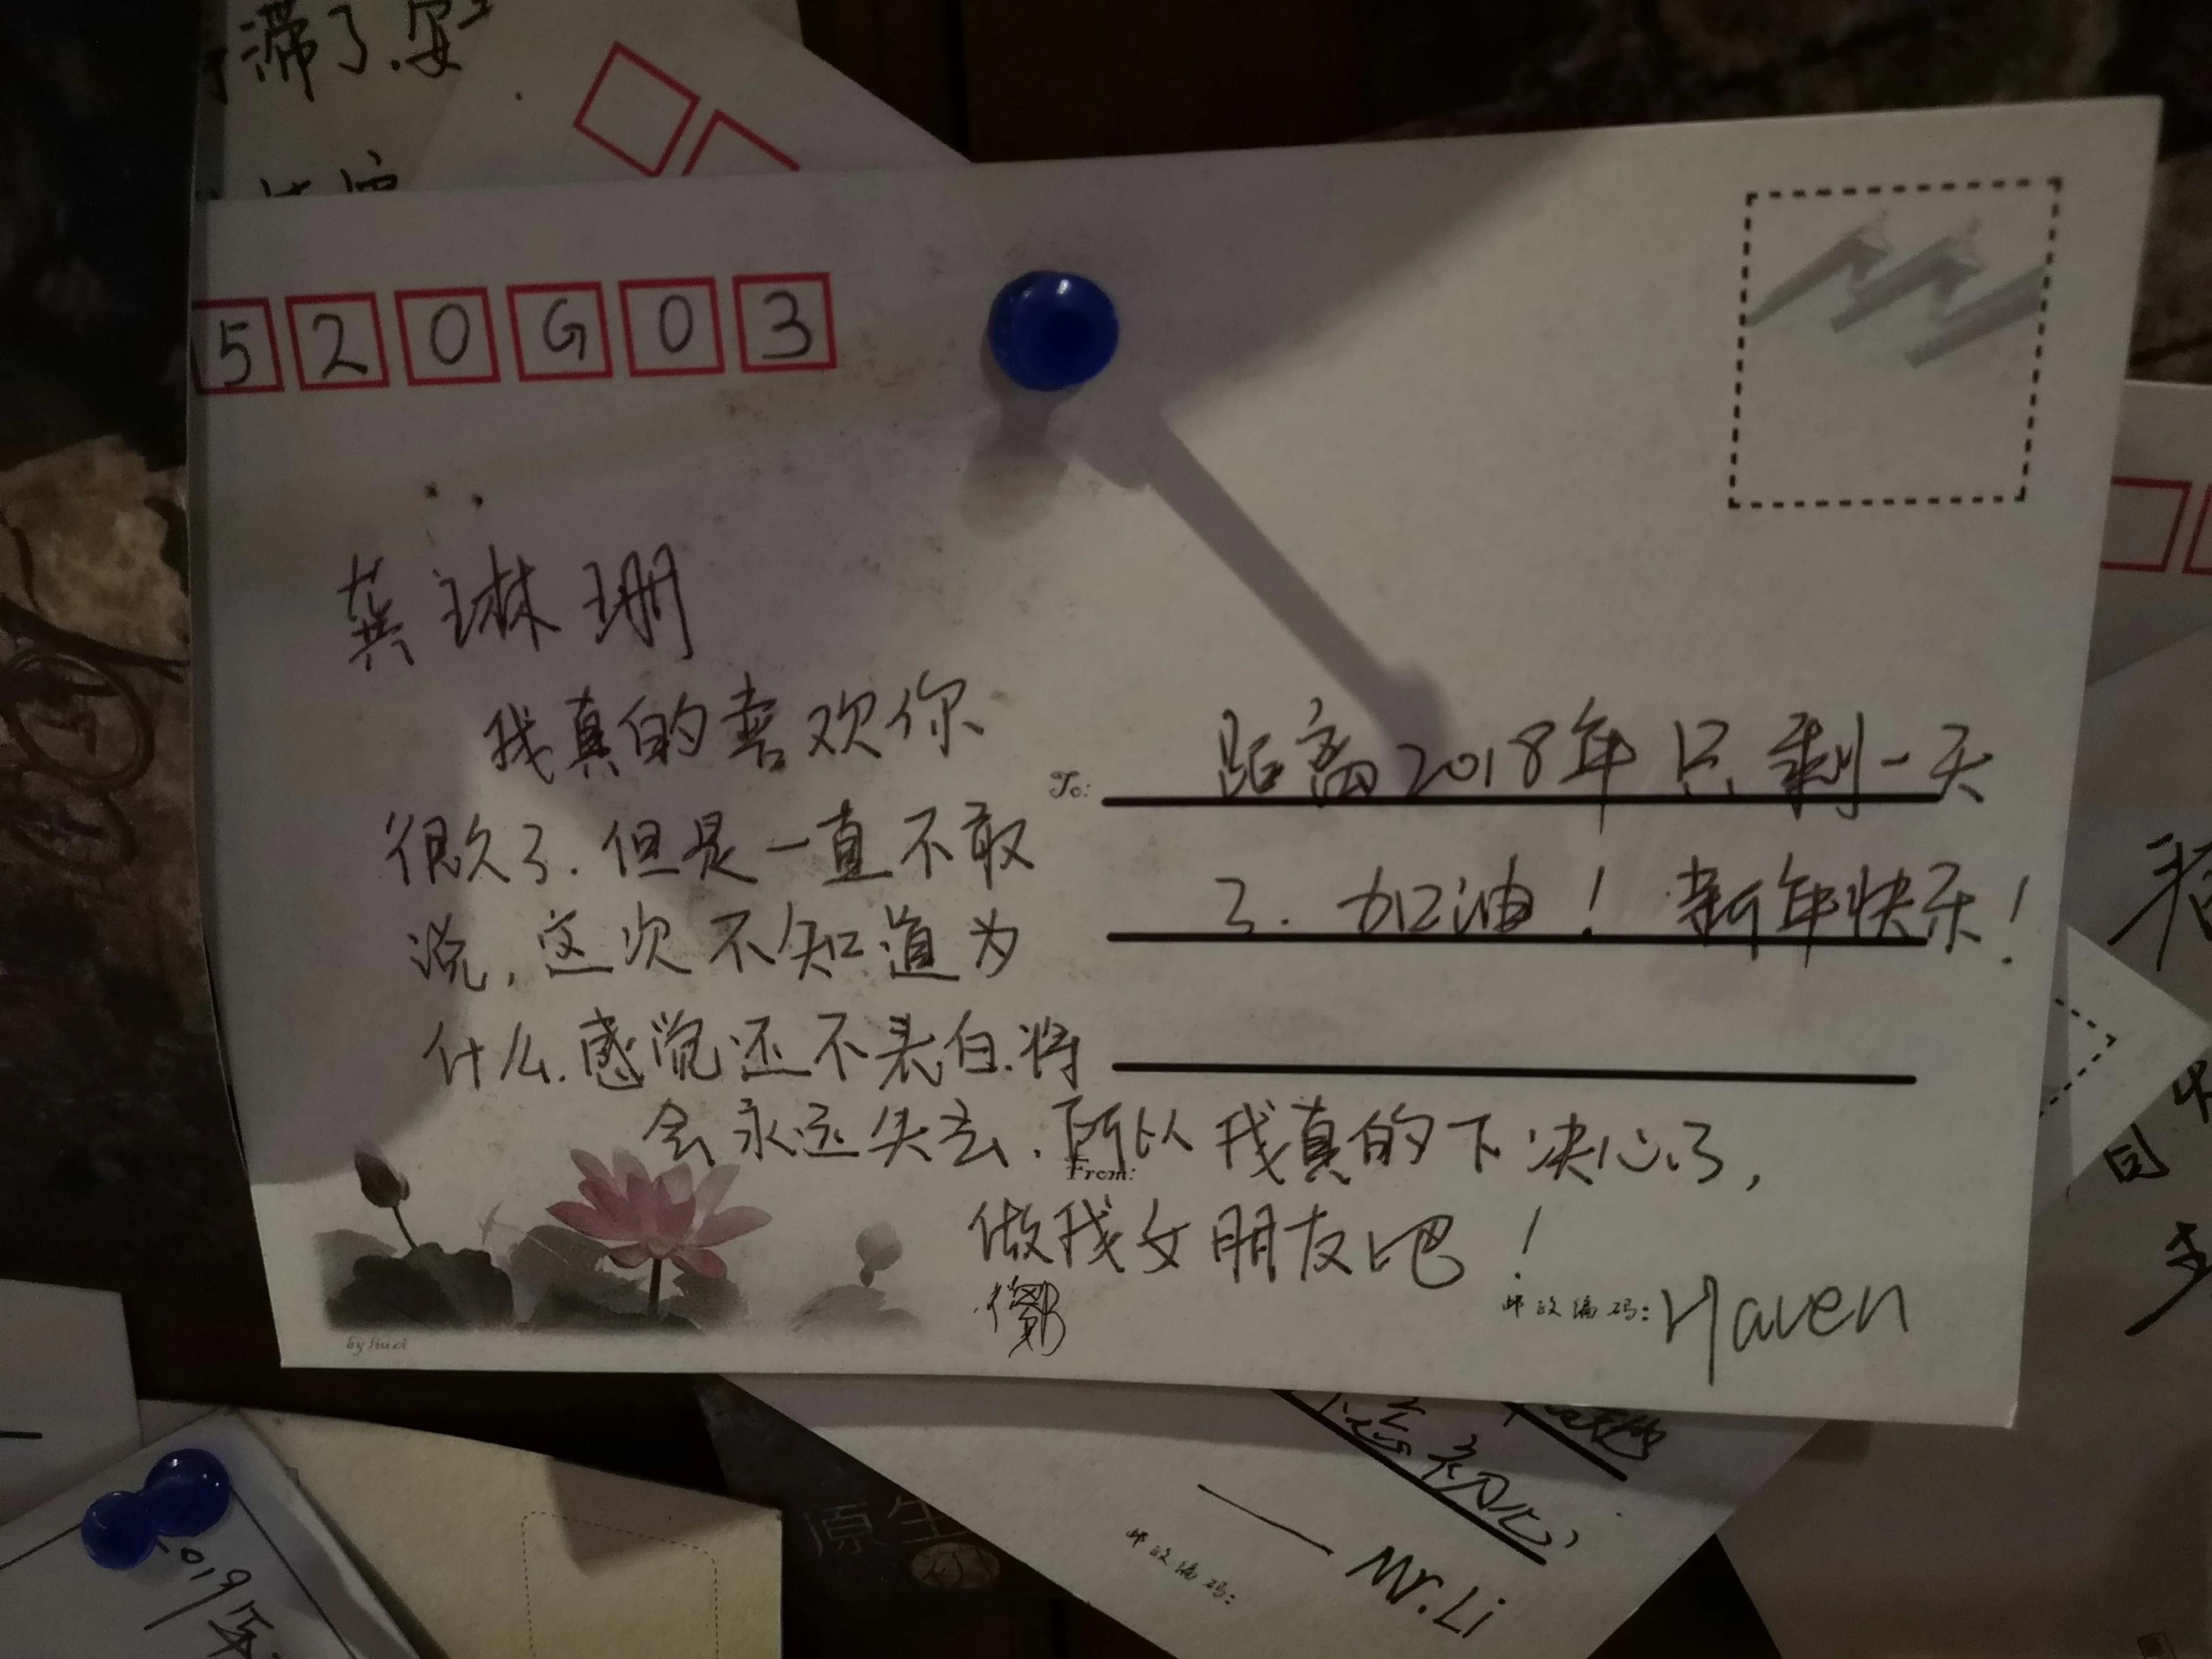 滞了.
520G03
龚琳珊
我真的喜欢你
很久了.但是一直不敢
说,这次不知道为
什么.感觉还不表白.将
会永远失去.所以我真的下决心了,
做我女朋友吧!
To: 距离2018年只剩一天
了.加油!新年快乐!
From:
邮政编码: Haven
忘初心
邮政编码:
Mr.Li
2019年
原生